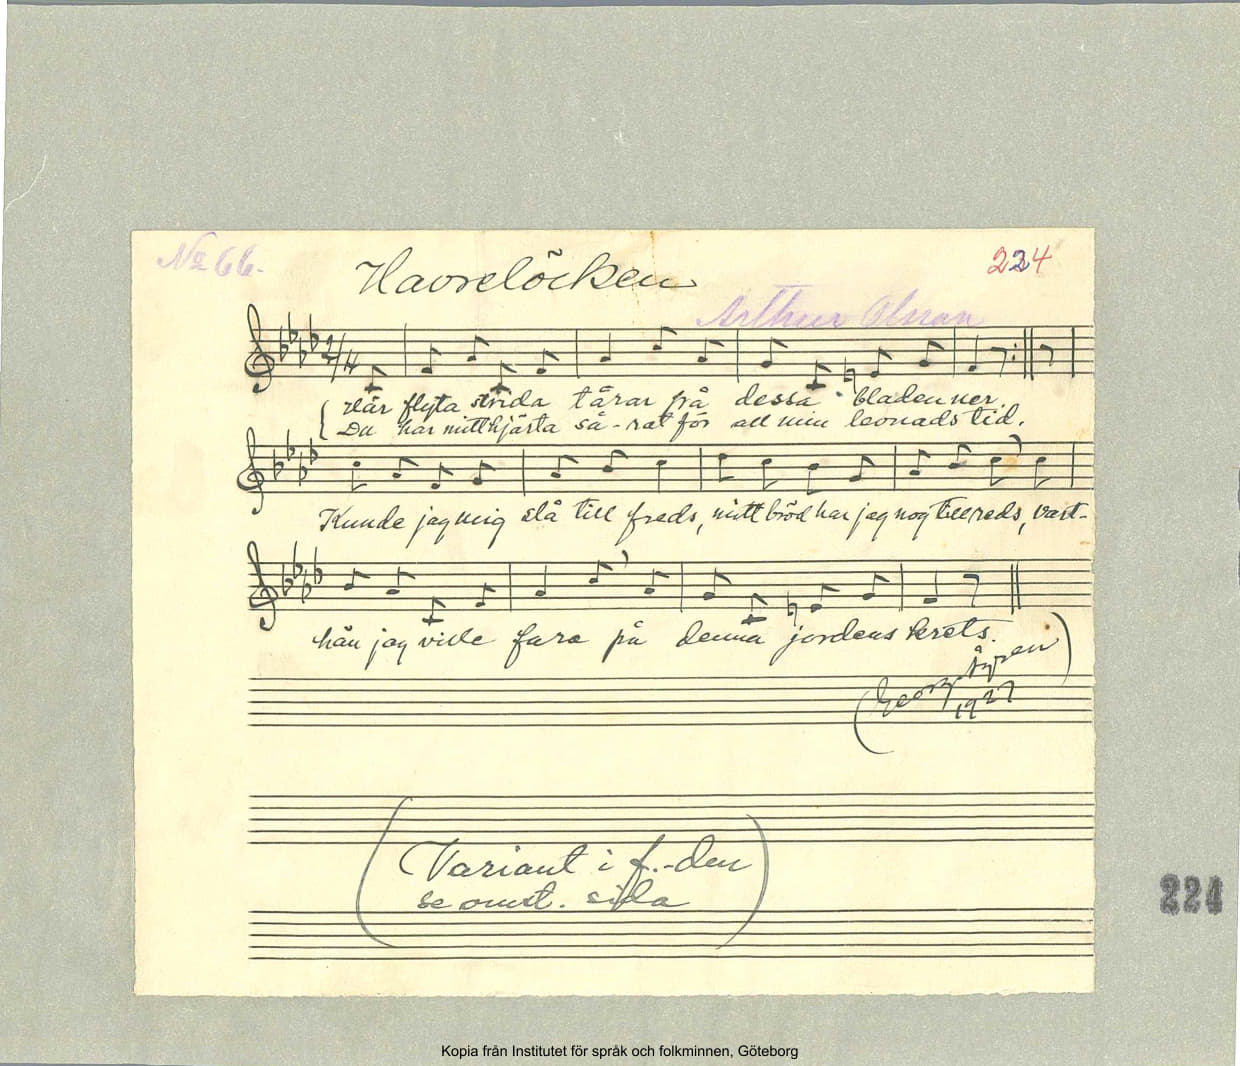 No 66.
224
Havrelöcken
Arthur Olsson
2/4
Här flyta strida tårar på dessa bladen ner.
Du har mitt hjärta så-rat för all min levnads tid.
Kunde jag mig slå till freds, mitt bröd har jag nog till reds, vart-
hän jag ville fara på denna jordens krets.
(Georg
1927)
(Variant i f.-den
se omst. sida)
224
Kopia från Institutet för språk och folkminnen, Göteborg